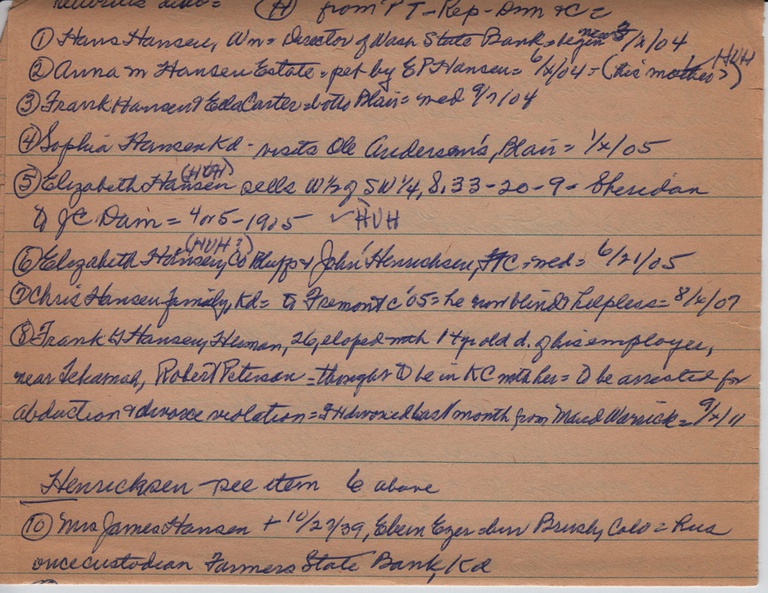 (H) from PT-Rep-Dan & C =
① Hans Hansen, Wn = Director of Wash State Bank = begin new 3/x/04
② Anna M Hansen Estate = pet by EP Hansen = 6/x/04 - (his mother?) HVH
③ Frank Hansen & Eda Carter = both Blair = med 9/7/04
④ Sophia Hansen Kd - visits Ole Anderson's, Blair = 1/x/05
⑤ Elizabeth Hansen (HVH) sells W½ of SW¼, 8, 33-20-9 = Sheridan
to JC Dam = 4 or 5-1905 ✓ HVH
⑥ Elizabeth Hansen, (HVH?) Co Bluffs & John Henricksen, FtC = med = 6/21/05
⑦ Chris Hansen family, Kd = to Fremont c '05 = he now blind & helpless = 8/x/07
⑧ Frank G Hansen, Herman, 26, eloped with 14 yr old d. of his employer,
near Tekamah, Robert Peterson = thought to be in KC with her = to be arrested for
abduction & divorce violation = FH divorced last month from Maud Warrick = 9/x/11
Henricksen - see item 6 above
⑩ Mrs James Hansen + 10/27/39, Eben Ezer = Brush, Colo = Rus
once custodian Farmers State Bank, Kd